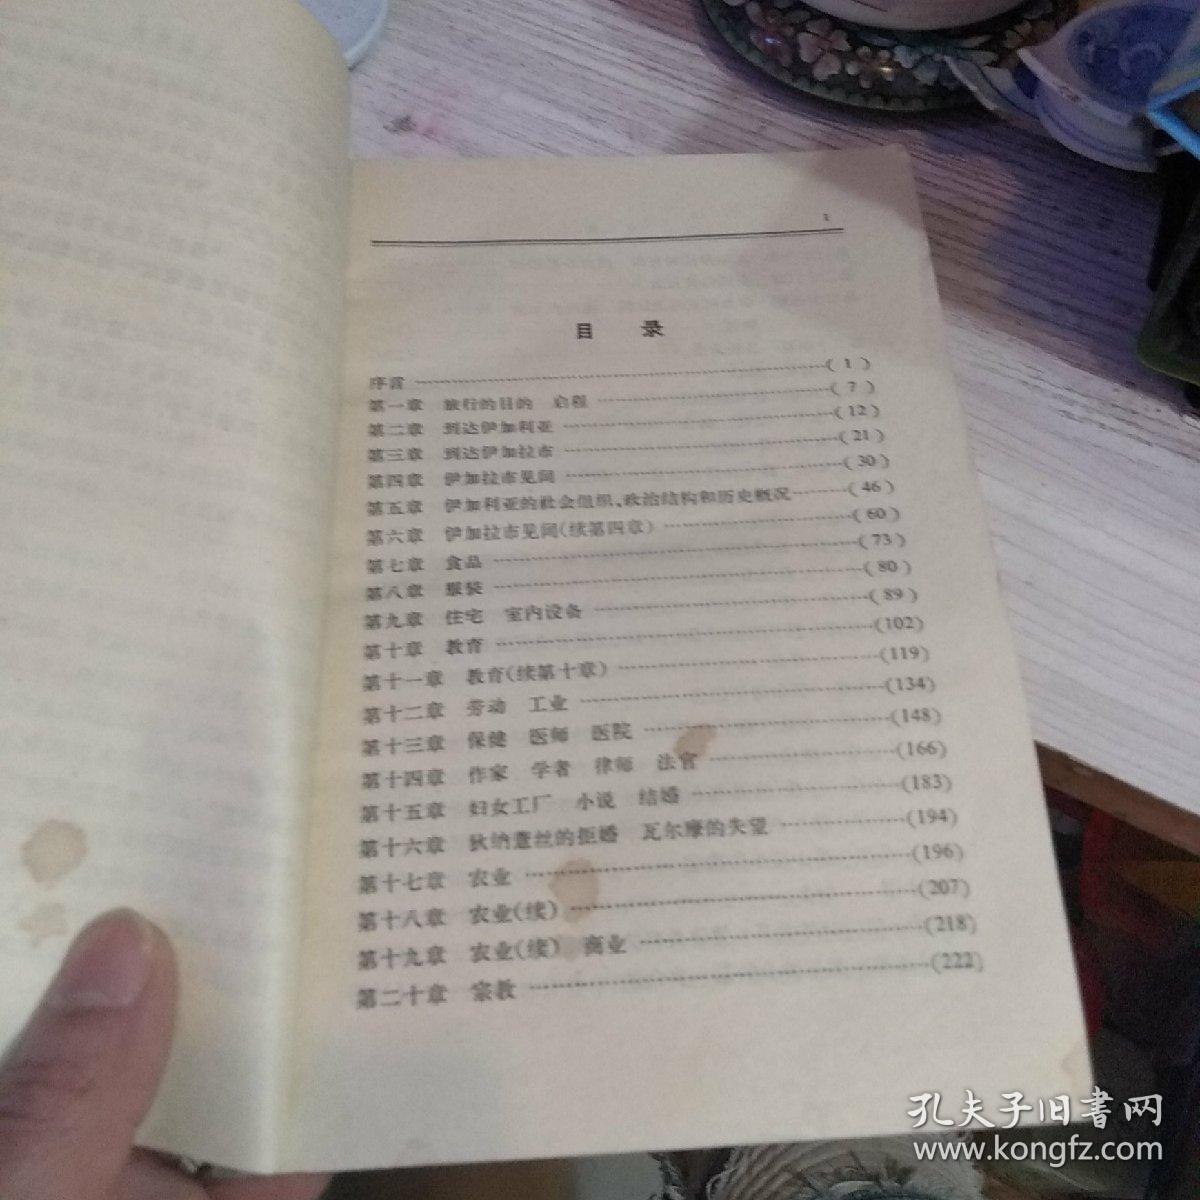 1
目 录
序言 ……………………………………………( 1 )
第一章 旅行的目的 启程 ……………………………( 7 )
第二章 到达伊加利亚 ……………………………( 12 )
第三章 到达伊加拉市 ……………………………( 21 )
第四章 伊加拉市见闻 ……………………………( 30 )
第五章 伊加利亚的社会组织、政治结构和历史概况………( 46 )
第六章 伊加拉市见闻(续第四章) ……………………( 60 )
第七章 食品 ……………………………………( 73 )
第八章 服装 ……………………………………( 80 )
第九章 住宅 室内设备 ……………………………( 89 )
第十章 教育 ……………………………………(102)
第十一章 教育(续第十章) …………………………(119)
第十二章 劳动 工业 ……………………………(134)
第十三章 保健 医师 医院 …………………………(148)
第十四章 作家 学者 律师 法官 ……………………(166)
第十五章 妇女工厂 小说 结婚 ……………………(183)
第十六章 狄纳薏丝的拒婚 瓦尔摩的失望 ……………(194)
第十七章 农业 …………………………………(196)
第十八章 农业(续) ………………………………(207)
第十九章 农业(续) 商业 …………………………(218)
第二十章 宗教 …………………………………(222)
孔夫子旧書网
www.kongfz.com